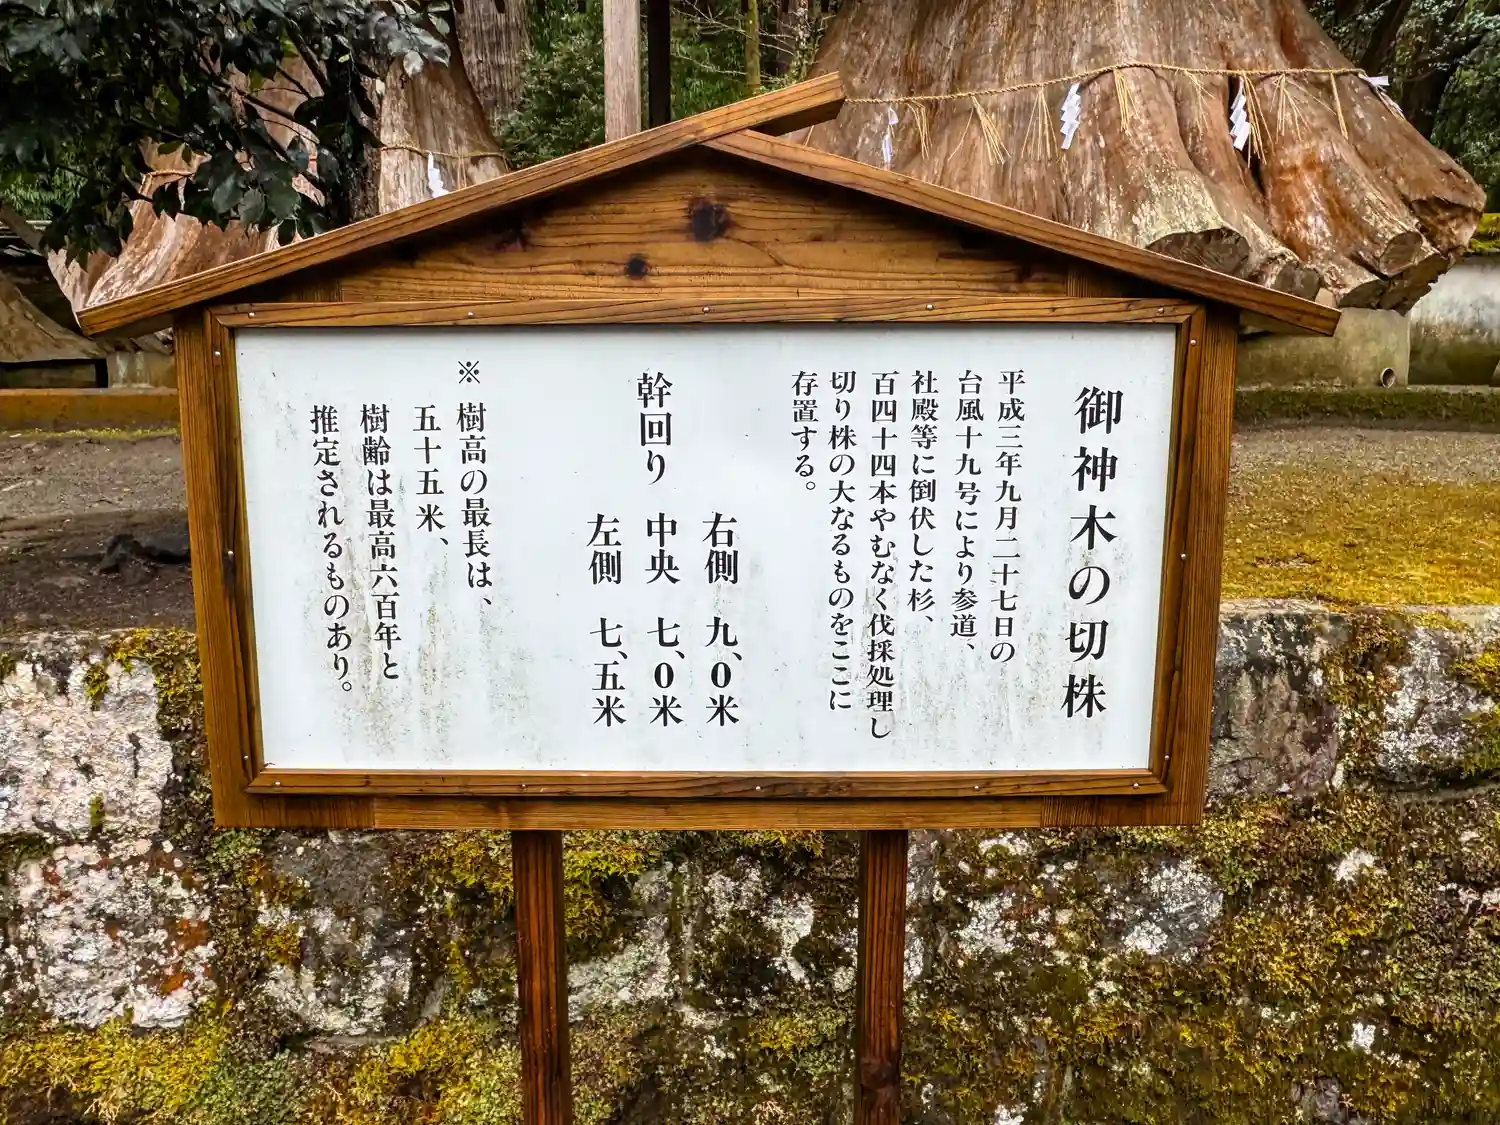 御神木の切株
平成三年九月二十七日の
台風十九号により参道、
社殿等に倒伏した杉、
百四十四本やむなく伐採処理し
切り株の大なるものをここに
存置する。
右側 九、0米
幹回り 中央 七、0米
左側 七、五米
※ 樹高の最長は、
五十五米、
樹齢は最高六百年と
推定されるものあり。